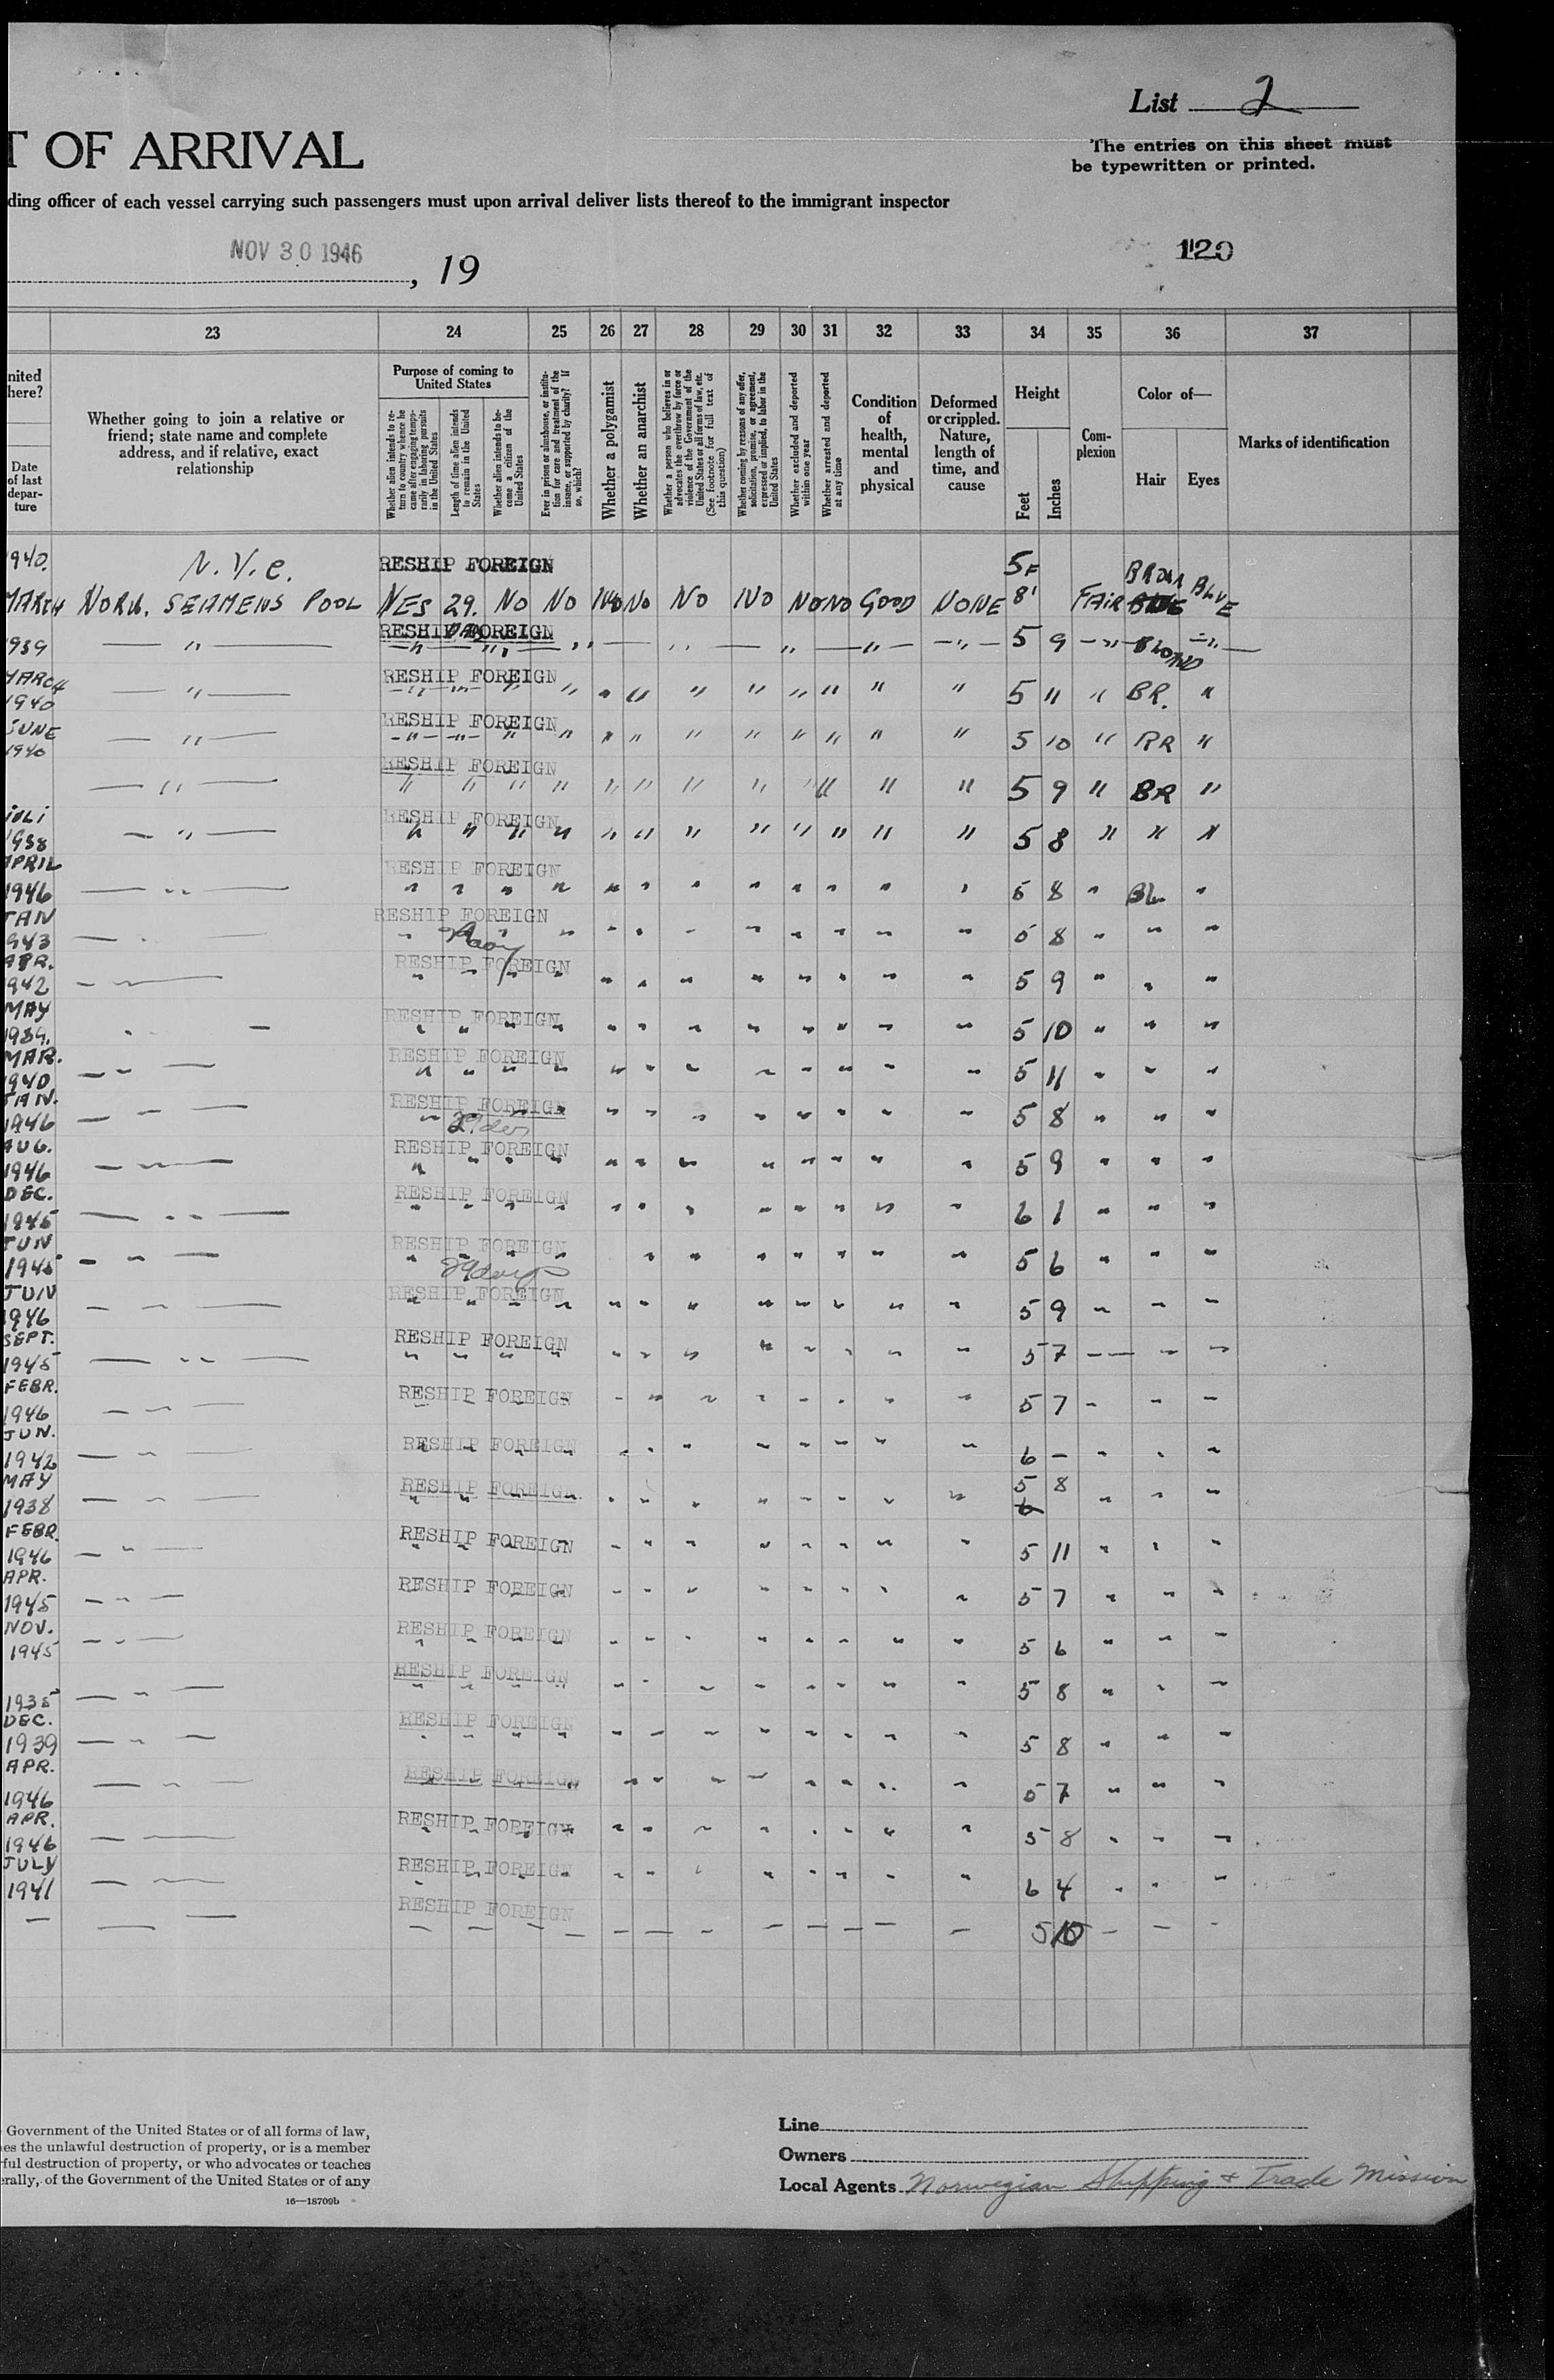 List 2
T OF ARRIVAL
The entries on this sheet must
be typewritten or printed.
ding officer of each vessel carrying such passengers must upon arrival deliver lists thereof to the immigrant inspector
NOV 30 1946
, 19
120
23 24 25 26 27 28 29 30 31 32 33 34 35 36 37
nited
here?
Date
of last
depar-
ture
Whether going to join a relative or
friend; state name and complete
address, and if relative, exact
relationship
Purpose of coming to
United States
Whether alien intends to re-
turn to country whence he
came after engaging tempo-
rarily in laboring pursuits
in the United States
Length of time alien intends
to remain in the United
States
Whether alien intends to be-
come a citizen of the
United States
Ever in prison or almshouse, or institu-
tion for care and treatment of the
insane, or supported by charity? If
so, which?
Whether a polygamist
Whether an anarchist
Whether a person who believes in or
advocates the overthrow by force or
violence of the Government of the
United States or all forms of law, etc.
(See footnote for full text of
this question)
Whether coming by reasons of any offer,
solicitation, promise, or agreement,
expressed or implied, to labor in the
United States
Whether excluded and deported
within one year
Whether arrested and deported
at any time
Condition
of
health,
mental
and
physical
Deformed
or crippled.
Nature,
length of
time, and
cause
Height
Feet
Inches
Com-
plexion
Color of—
Hair
Eyes
Marks of identification
940. N.Y.C. RESHIP FOREIGN 5F
MARCH NORW. SEAMENS POOL YES 29. NO NO NO NO NO NO NO NO GOOD NONE 8' FAIR BROWN BLUE
DAYS
939 — " — RESHIP FOREIGN " " " " 5 9 " BLOND "
MARCH
1940 — " — RESHIP FOREIGN " " " " " " " " " 5 11 " BR. "
JUNE
1940 — " — RESHIP FOREIGN " " " " " " " " " 5 10 " BR "
— " — RESHIP FOREIGN " " " " " " " " " " 5 9 " BR "
JULI
1938 — " — RESHIP FOREIGN " " " " " " " " " " 5 8 " " "
APRIL
1946 — " — RESHIP FOREIGN " " " " " " " " " " 5 8 " BL "
JAN
943 — " RESHIP FOREIGN " " " " " " " " " " 5 8 " " "
APR.
942 — " — RESHIP FOREIGN " " " " " " " " " " 5 9 " " "
MAY
1939. " — RESHIP FOREIGN " " " " " " " " " " 5 10 " " "
MAR.
940 — " — RESHIP FOREIGN " " " " " " " " " " 5 11 " " "
JAN.
1946 — " — RESHIP FOREIGN " " " " " " " " " " 5 8 " " "
AUG.
1946 — " — RESHIP FOREIGN " " " " " " " " " " 5 9 " " "
DEC.
1945 — " — RESHIP FOREIGN " " " " " " " " " " 6 1 " " "
JUN
1945 — " — RESHIP FOREIGN " " " " " " " " " 5 6 " " "
29 days
JUN
1946 — " — RESHIP FOREIGN " " " " " " " " " " 5 9 " " "
SEPT.
1945 — " — RESHIP FOREIGN " " " " " " " " " " 5 7 — " "
FEBR.
1946 — " — RESHIP FOREIGN " " " " " " " " " " 5 7 " " "
JUN.
1942 — " — RESHIP FOREIGN " " " " " " " " " " 6 — " " "
MAY
1938 — " — RESHIP FOREIGN " " " " " " " " " " 5 8 " " "
FEBR.
1946 — " — RESHIP FOREIGN " " " " " " " " " " 5 11 " " "
APR.
1945 — " — RESHIP FOREIGN " " " " " " " " " " 5 7 " " "
NOV.
1945 — " — RESHIP FOREIGN " " " " " " " " " " 5 6 " " "
1935 — " — RESHIP FOREIGN " " " " " " " " " " 5 8 " " "
DEC.
1939 — " — RESHIP FOREIGN " " " " " " " " " " 5 8 " " "
APR.
1946 — " — RESHIP FOREIGN " " " " " " " " " " 5 7 " " "
APR.
1946 — " — RESHIP FOREIGN " " " " " " " " " " 5 8 " " "
JULY
1941 — " — RESHIP FOREIGN " " " " " " " " " " 6 4 " " "
— — — RESHIP FOREIGN — — — — — — — — — — 5 10 — — -
Government of the United States or of all forms of law,
es the unlawful destruction of property, or is a member
ful destruction of property, or who advocates or teaches
erally, of the Government of the United States or of any
16—18709b
Line
Owners
Local Agents Norwegian Shipping & Trade Mission